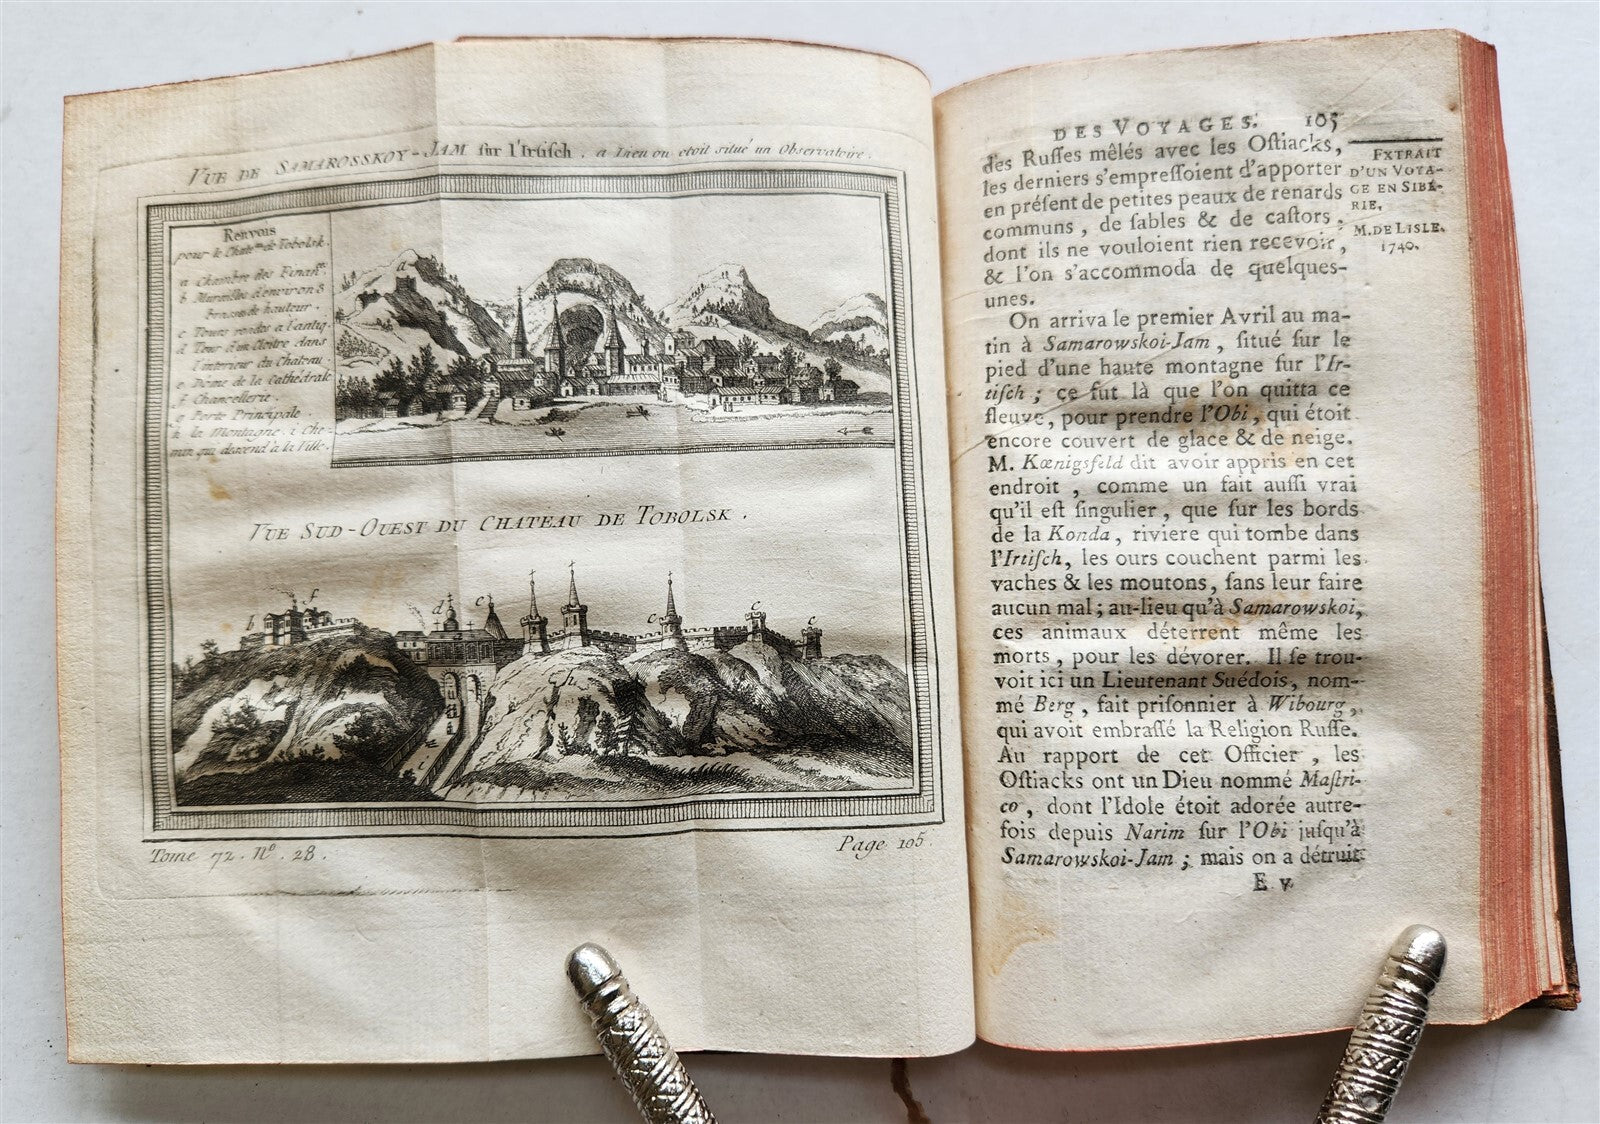 VUE DE SAMAROSSKOY-JAM sur l'Irtisch, a Lieu ou etoit situé un Observatoire.
Renvois
pour le Chateau de Tobolsk.
a Chambre des Financ.
b Murailles d'environ 8
Brasses de hauteur.
c Tours rondes a l'antiq.
d Tour d'un Cloitre dans
l'interieur du Chateau.
e Dôme de la Cathédrale
f Chancellerie.
g Porte Principale.
h la Montagne. i Che-
min qui descend à la Ville.
a
VUE SUD-OUEST DU CHATEAU DE TOBOLSK.
b f d e c c c
h h
i
Tome 72. N°. 28.
Page 105.
DES VOYAGES. 105
des Ruſſes mêlés avec les Oſtiacks,
les derniers s'empreſſoient d'apporter
en préſent de petites peaux de renards
communs, de ſables & de caſtors,
dont ils ne vouloient rien recevoir,
& l'on s'accommoda de quelques-
unes.
On arriva le premier Avril au ma-
tin à Samarowskoi-Jam, ſitué ſur le
pied d'une haute montagne ſur l'Ir-
tiſch; ce fut là que l'on quitta ce
fleuve, pour prendre l'Obi, qui étoit
encore couvert de glace & de neige.
M. Kœnigsfeld dit avoir appris en cet
endroit, comme un fait auſſi vrai
qu'il eſt ſingulier, que ſur les bords
de la Konda, riviere qui tombe dans
l'Irtiſch, les ours couchent parmi les
vaches & les moutons, ſans leur faire
aucun mal; au-lieu qu'à Samarowskoi,
ces animaux déterrent même les
morts, pour les dévorer. Il ſe trou-
voit ici un Lieutenant Suédois, nom-
mé Berg, fait priſonnier à Wibourg,
qui avoit embraſſé la Religion Ruſſe.
Au rapport de cet Officier, les
Oſtiacks ont un Dieu nommé Maſtri-
co, dont l'Idole étoit adorée autre-
fois depuis Narim ſur l'Obi juſqu'à
Samarowskoi-Jam; mais on a détruit
E v
EXTRAIT
D'UN VOYA-
GE EN SIBÉ-
RIE.
M. DE LISLE.
1740.